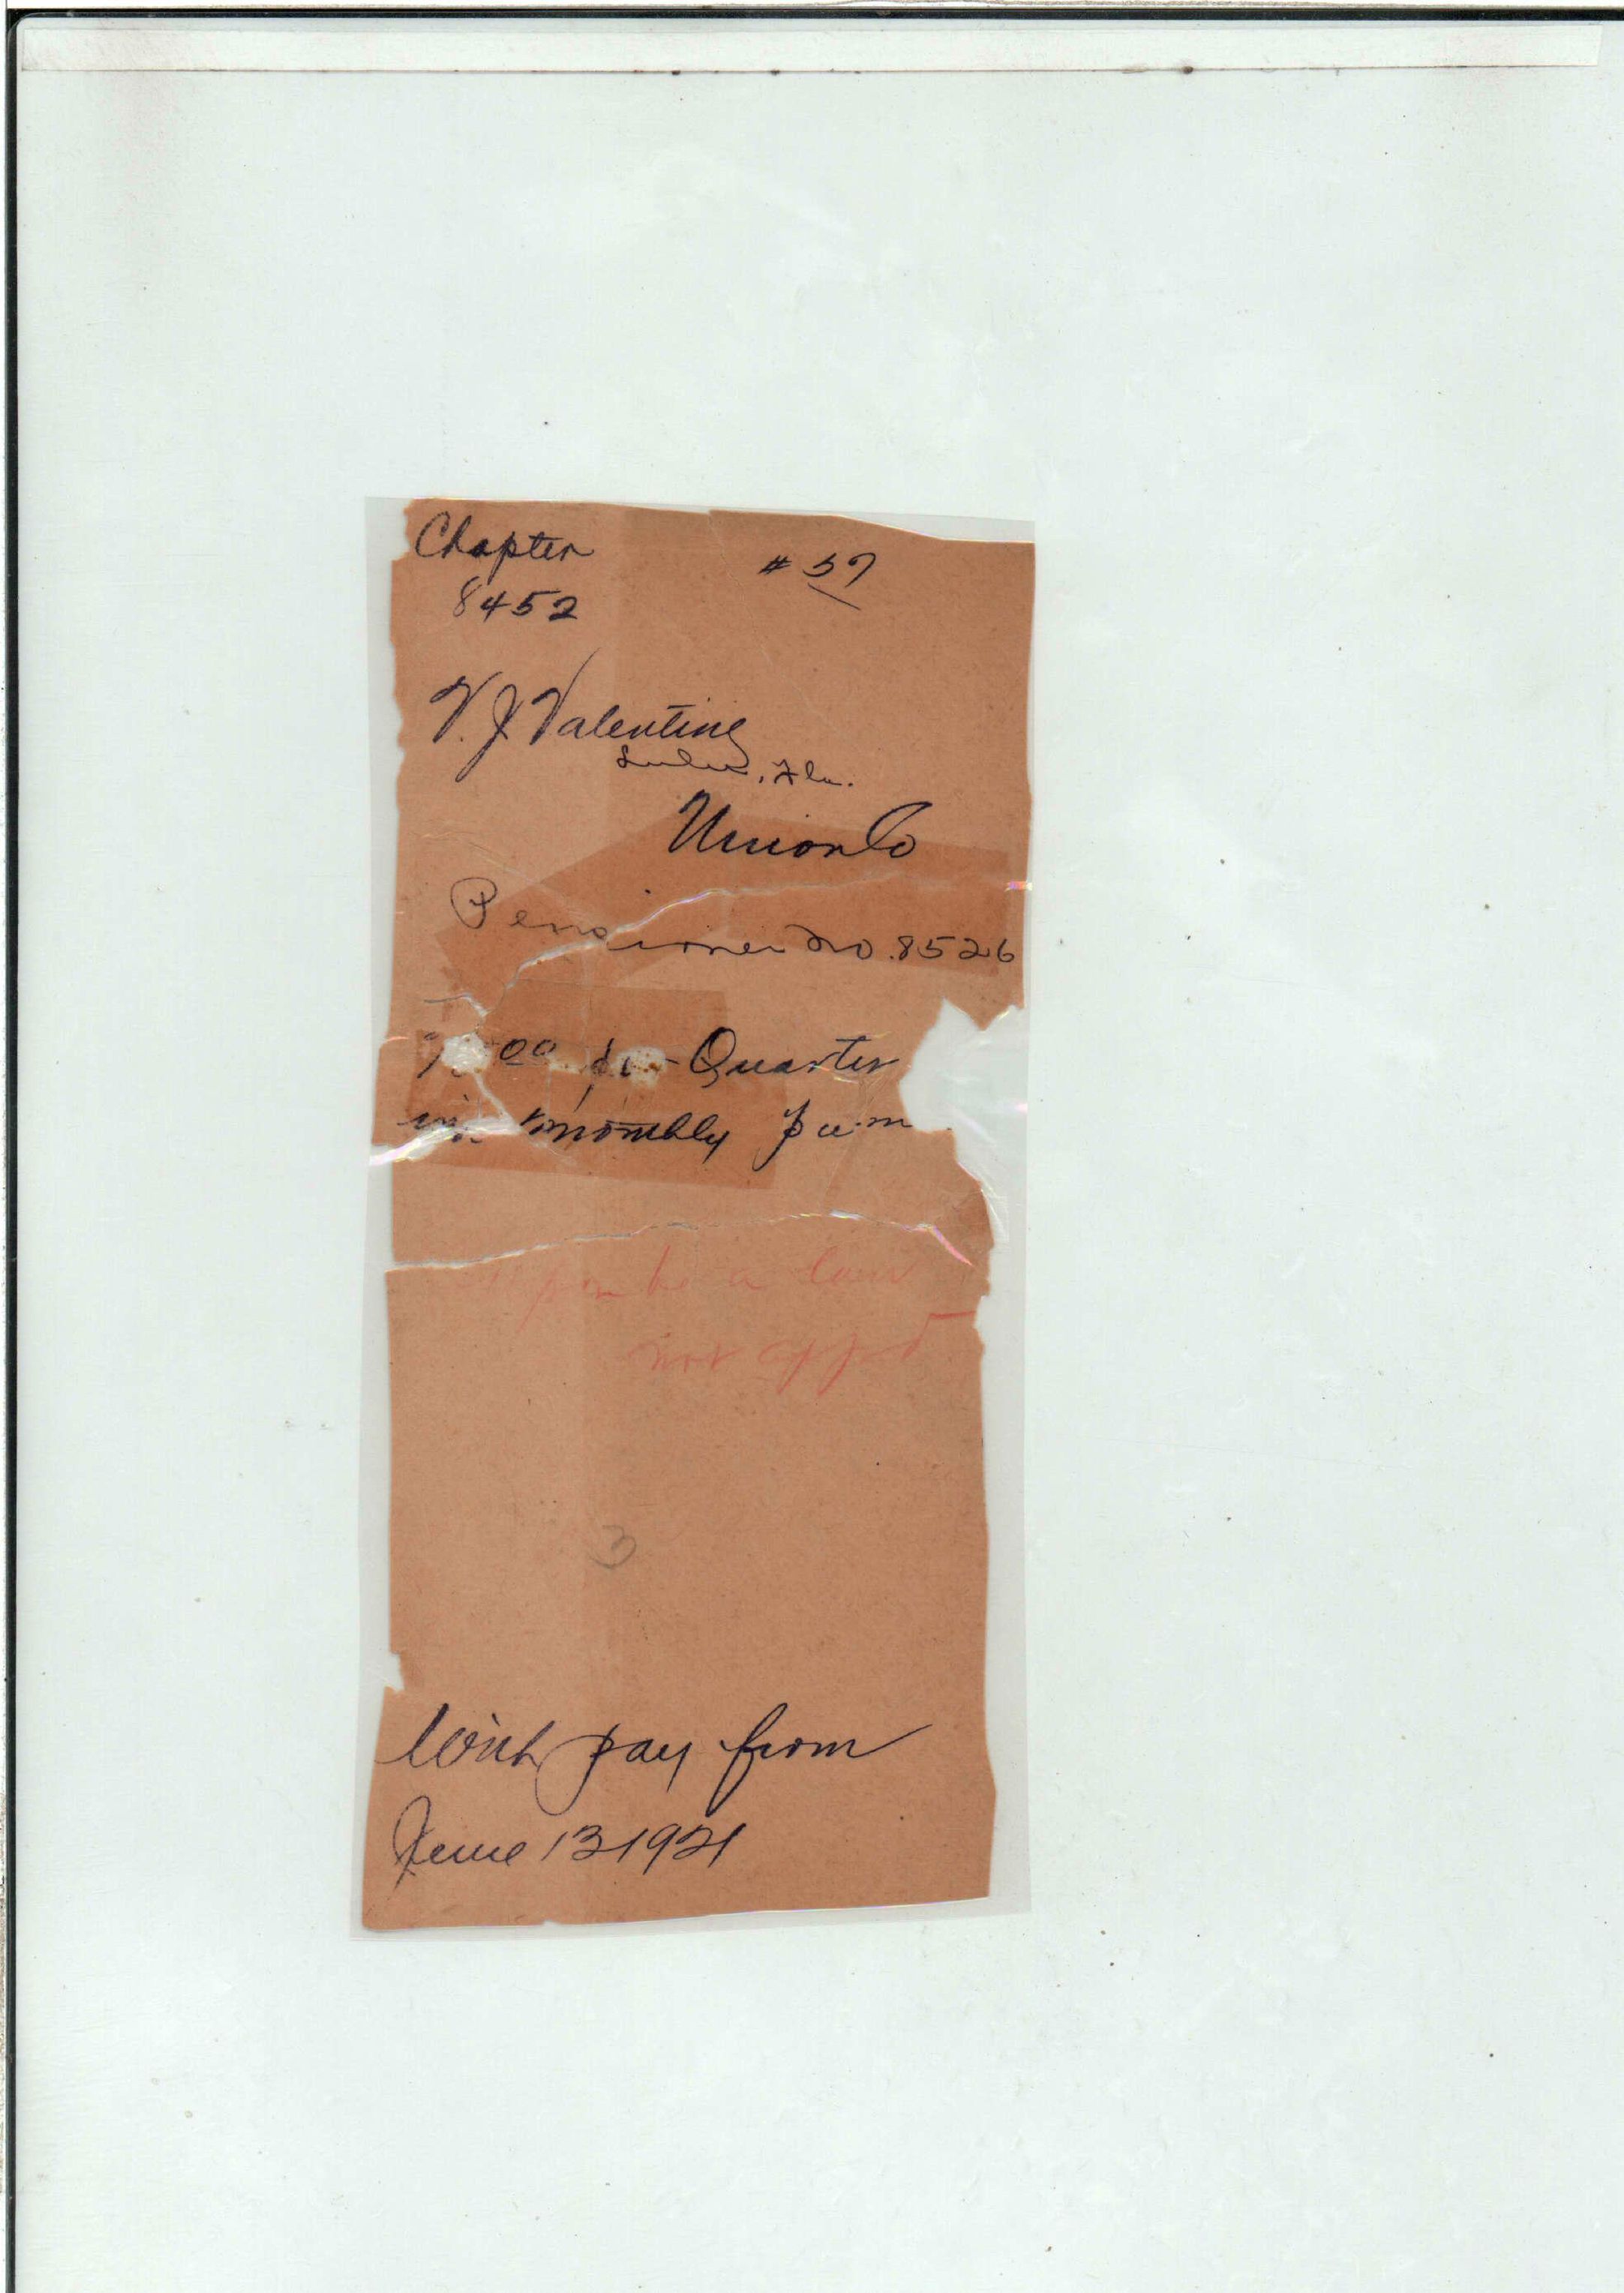 Chapter
# 57
8452
V. J. Valentine
Lulu, Fla.
Union Co
Pensioner No. 8526
00 per Quarter
in monthly
a
not app
3
With pay from
June 13 1921